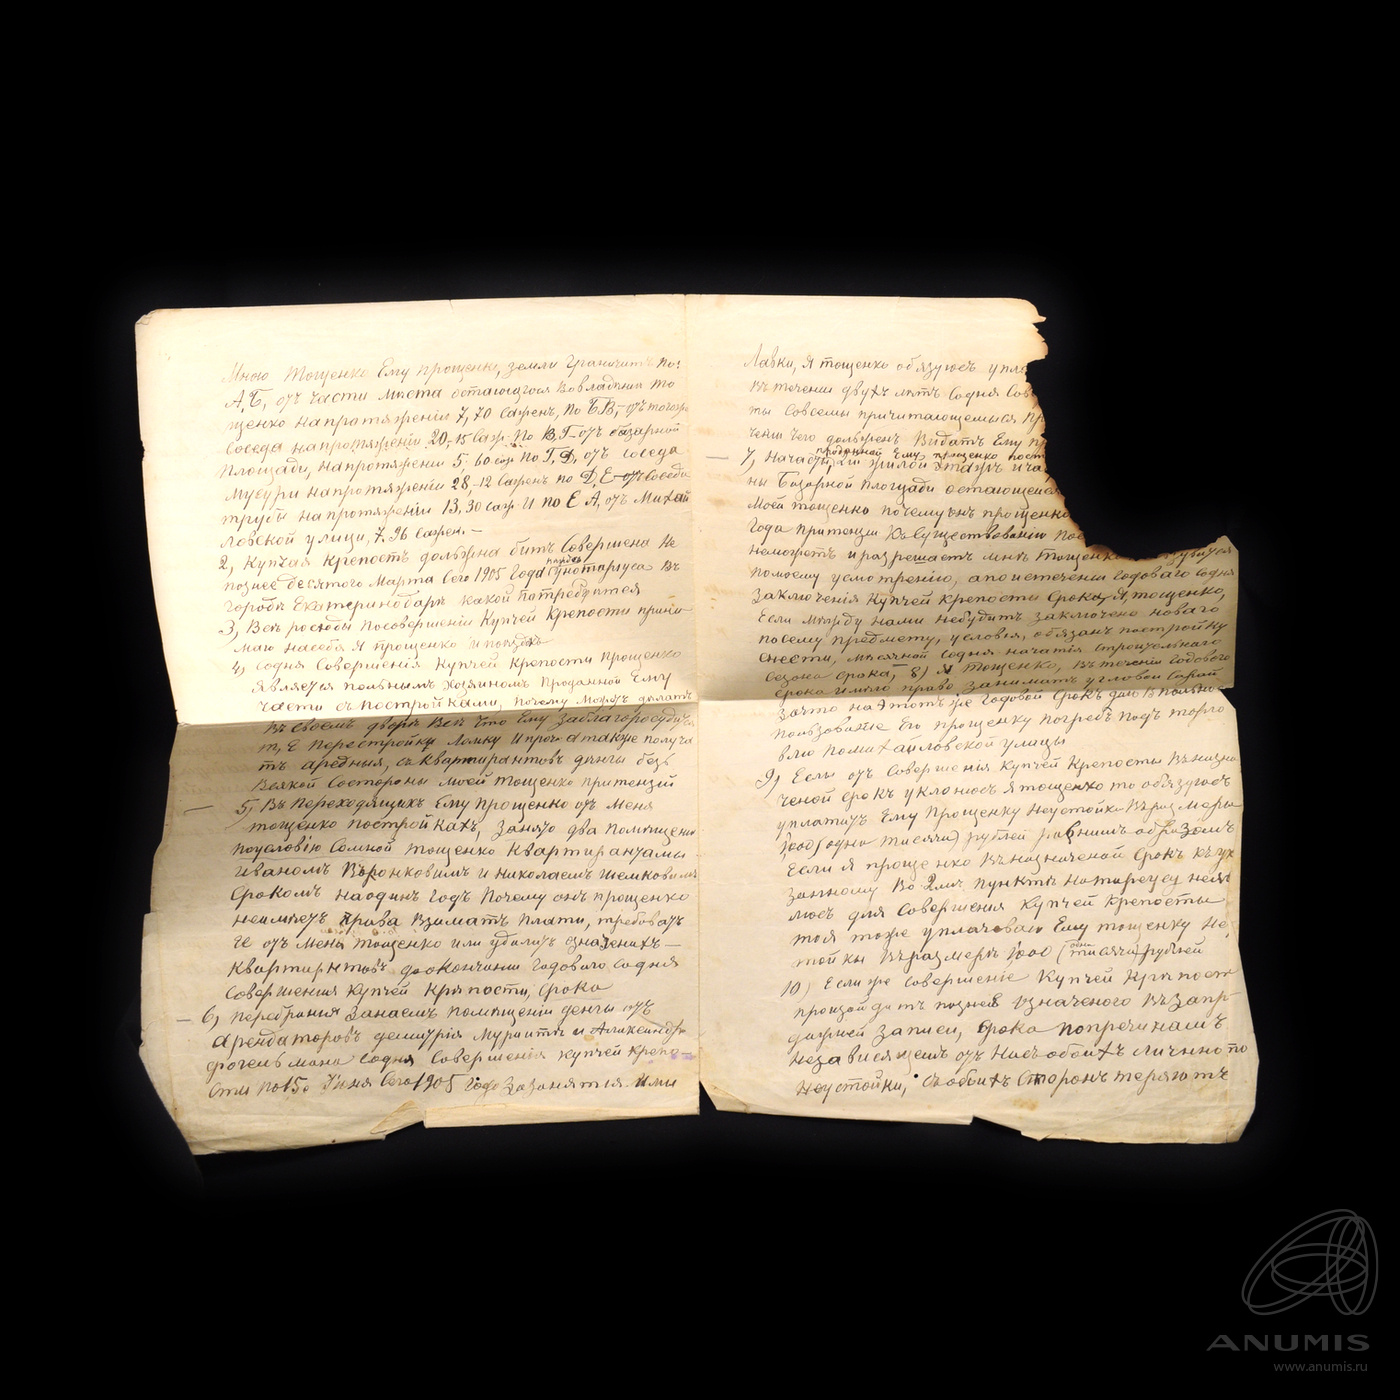 Мною Тощенко Ему Прощенки, земли Граничитъ по:
А,Б, отъ части мѣста остающагося во владѣнии То
щенко на протяжении 7,70 Саженъ, По Б В,- отъ
Соседа на протяжении 20,-15 Саж. По В,Г- отъ базарной
Площади, на протяжении 5,60 саж По Г,Д, отъ соседа
Мусури на протяжении 28,-12 Саженъ по Д,Е- отъ соседа
на протяжении 13,30 саж И по Е А, отъ Михай
ловской улици, 7.96 Сажен.-
2, Купчая крепость должна бить Совершена Не
познее десятого Марта Сего 1905 Года у Нотариуса Въ
городѣ Екатеринодарѣ какой потребуится
3, Всѣ росходы по совершении Купчей Крепости прини
маю на себя Я прощенко
4, Содня Совершения Купчей Крепости Прощенко
является полнымъ Хозяиномъ Проданной Ему
части съ постройками, почему можетъ делать
въ своемъ дворѣ Всѣ что Ему заблагоросудитъ
т, Е Перестройку Ломку И проч а также получа
ть арендныя, съ Квартирантовъ дѣнги безъ
Всякой Состороны моей тощенко притензий
5, Въ Переходящихъ Ему Прощенко отъ Меня
тощенко постройкахъ, занято два помѣщения
по условію Сомной тощенко квартирантамы
Иваномъ и Николаемъ
Срокомъ на одинъ годъ Почему онъ прощенко
неимѣетъ Права Взимать плати, требовать
Ее отъ меня тощенко или удалить означенихъ —
Квартирнтовъ до окончания годового содня
Совершения Купчей Крѣпости, Срока
— 6, Перебрания Занаемъ помѣщении денги отъ
Арендаторовъ и Александра
Содня Совершения Купчей Крепо-
сти по 15е Сего 1905 года за занятия Ими
Лавки, Я тощенко обязуюсъ упла
Въ течении двухъ лѣтъ Содня Сов
ты Совсеми причитающемыся Пр
чени чего долженъ Видать Ему пр
проданной Ему прощенко пост
— 7,
ны Базарной площади остающейся
Моей тощенко почему онъ прощенко
Года притензи Въ существовании пос
неможетъ и разрешаетъ мнѣ Тощенко
по моему усмотрению, а по истечении годоваго содня
Заключения Купчей крепости Срока, Я тощенко,
Если между нами небудить заключено новаго
по сему предмету, условія, обязанъ постройку
снести, мѣсячной содня начатія строителнаго
сезона срока,- 8) Я Тощенко, Въ течении Годового
срока имѣю право занимать угловой Сарай
за что на этотъ же Годовой Срокъ даю въ полное
ползование Ему прощенку погребъ подъ торго
влю по Михайловской улицы
9, Если отъ Совершения Купчей Крепости Въ назна
ченой срокъ уклонюсъ Я тощенко то обязуюсъ
уплатить Ему Прощенку Неустойки Въ размеры
1000 (одна тисяча) рублей равнимъ образомъ
Если я проценко Въ назначеной срокъ къ ука
занному Во 2мъ, пунктѣ нотариусу не яв
люсъ для Совершения Купчей Крепости
то я тоже уплачоваю Ему тощенку Не,
тойки Въ размерѣ 1000 (одна тисяча) рублей
10) Если же Совершение Купчей Крѣпости
произойдитъ познее означеного Въ запр-
дажней записи, Срока по причинамъ
независящемъ отъ Насъ обоихъ лично то
неустойки, съ обоихъ Сторонъ теряютъ
ANUMIS
www.anumis.ru